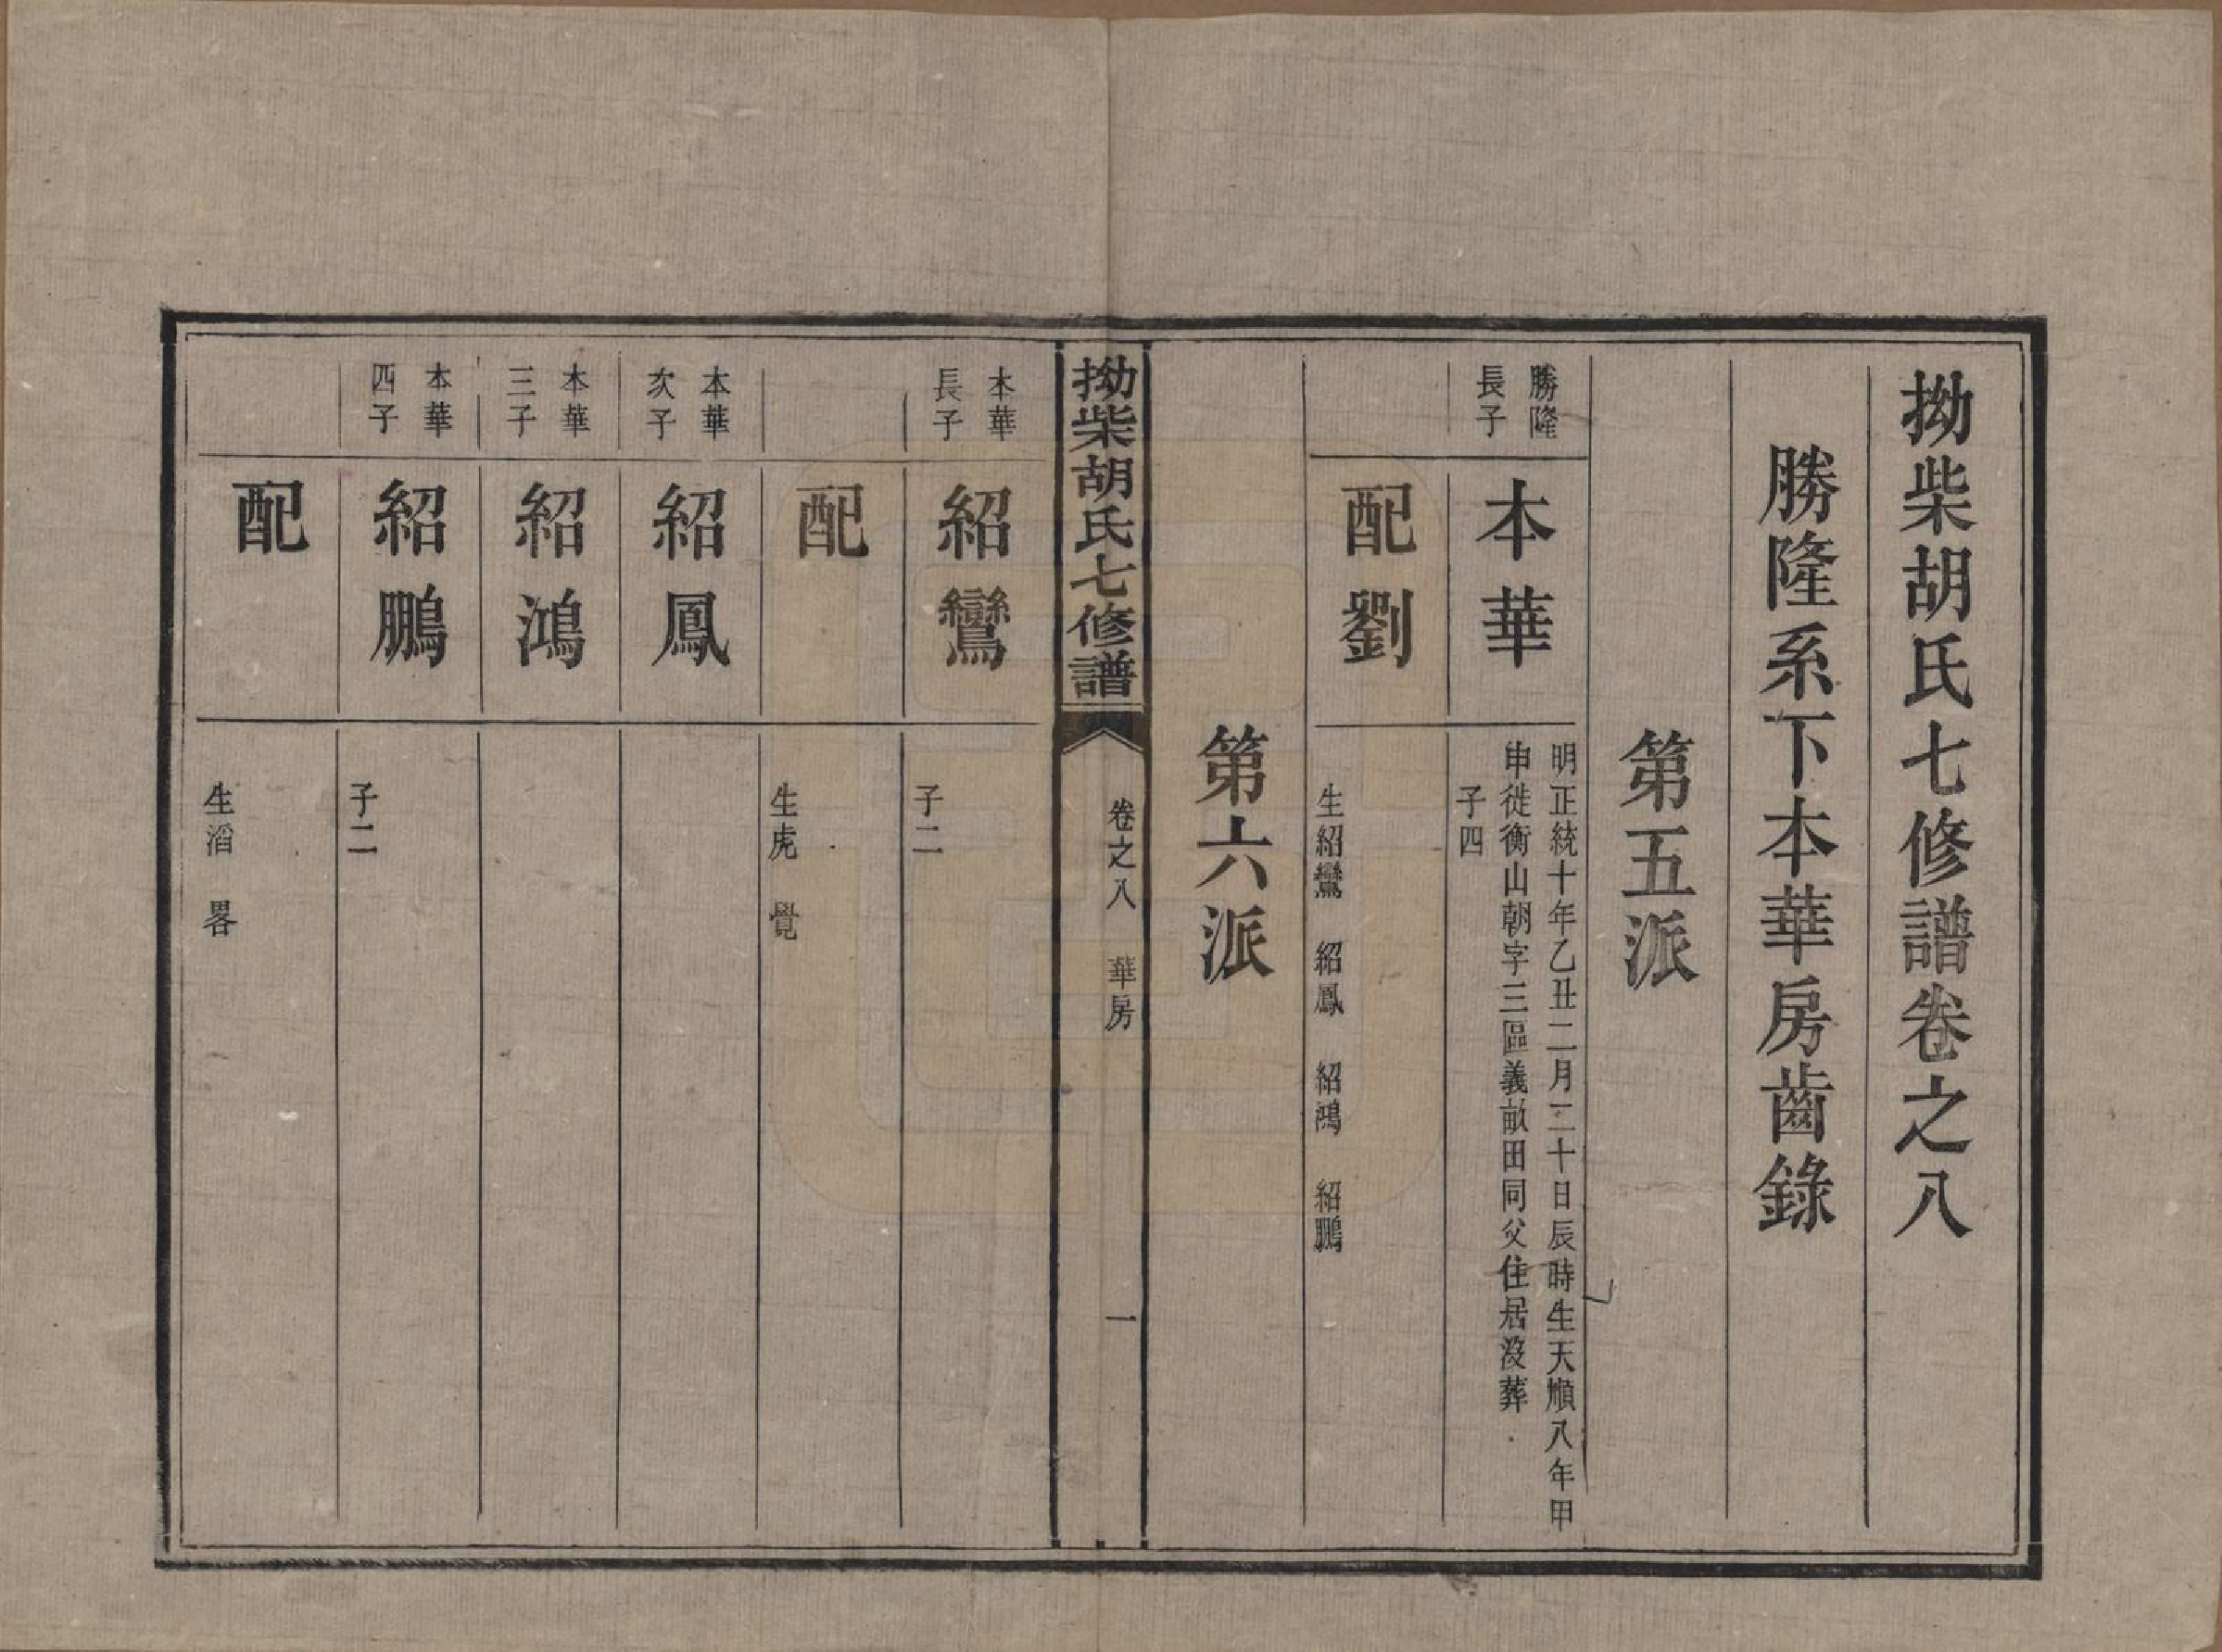 拗柴胡氏七修譜卷之八
勝隆系下本華房齒錄
第五派
勝隆
長子
本華
明正統十年乙丑二月二十日辰時生天順八年甲
申徙衡山朝字三區義畝田同父住居沒葬
子四
配劉
生紹鸞　紹鳳　紹鴻　紹鵬
第六派
拗柴胡氏七修譜
卷之八　華房
一
本華
長子
紹鸞
子二
配
生虎　覺
本華
次子
紹鳳
本華
三子
紹鴻
本華
四子
紹鵬
子二
配
生滔　畧